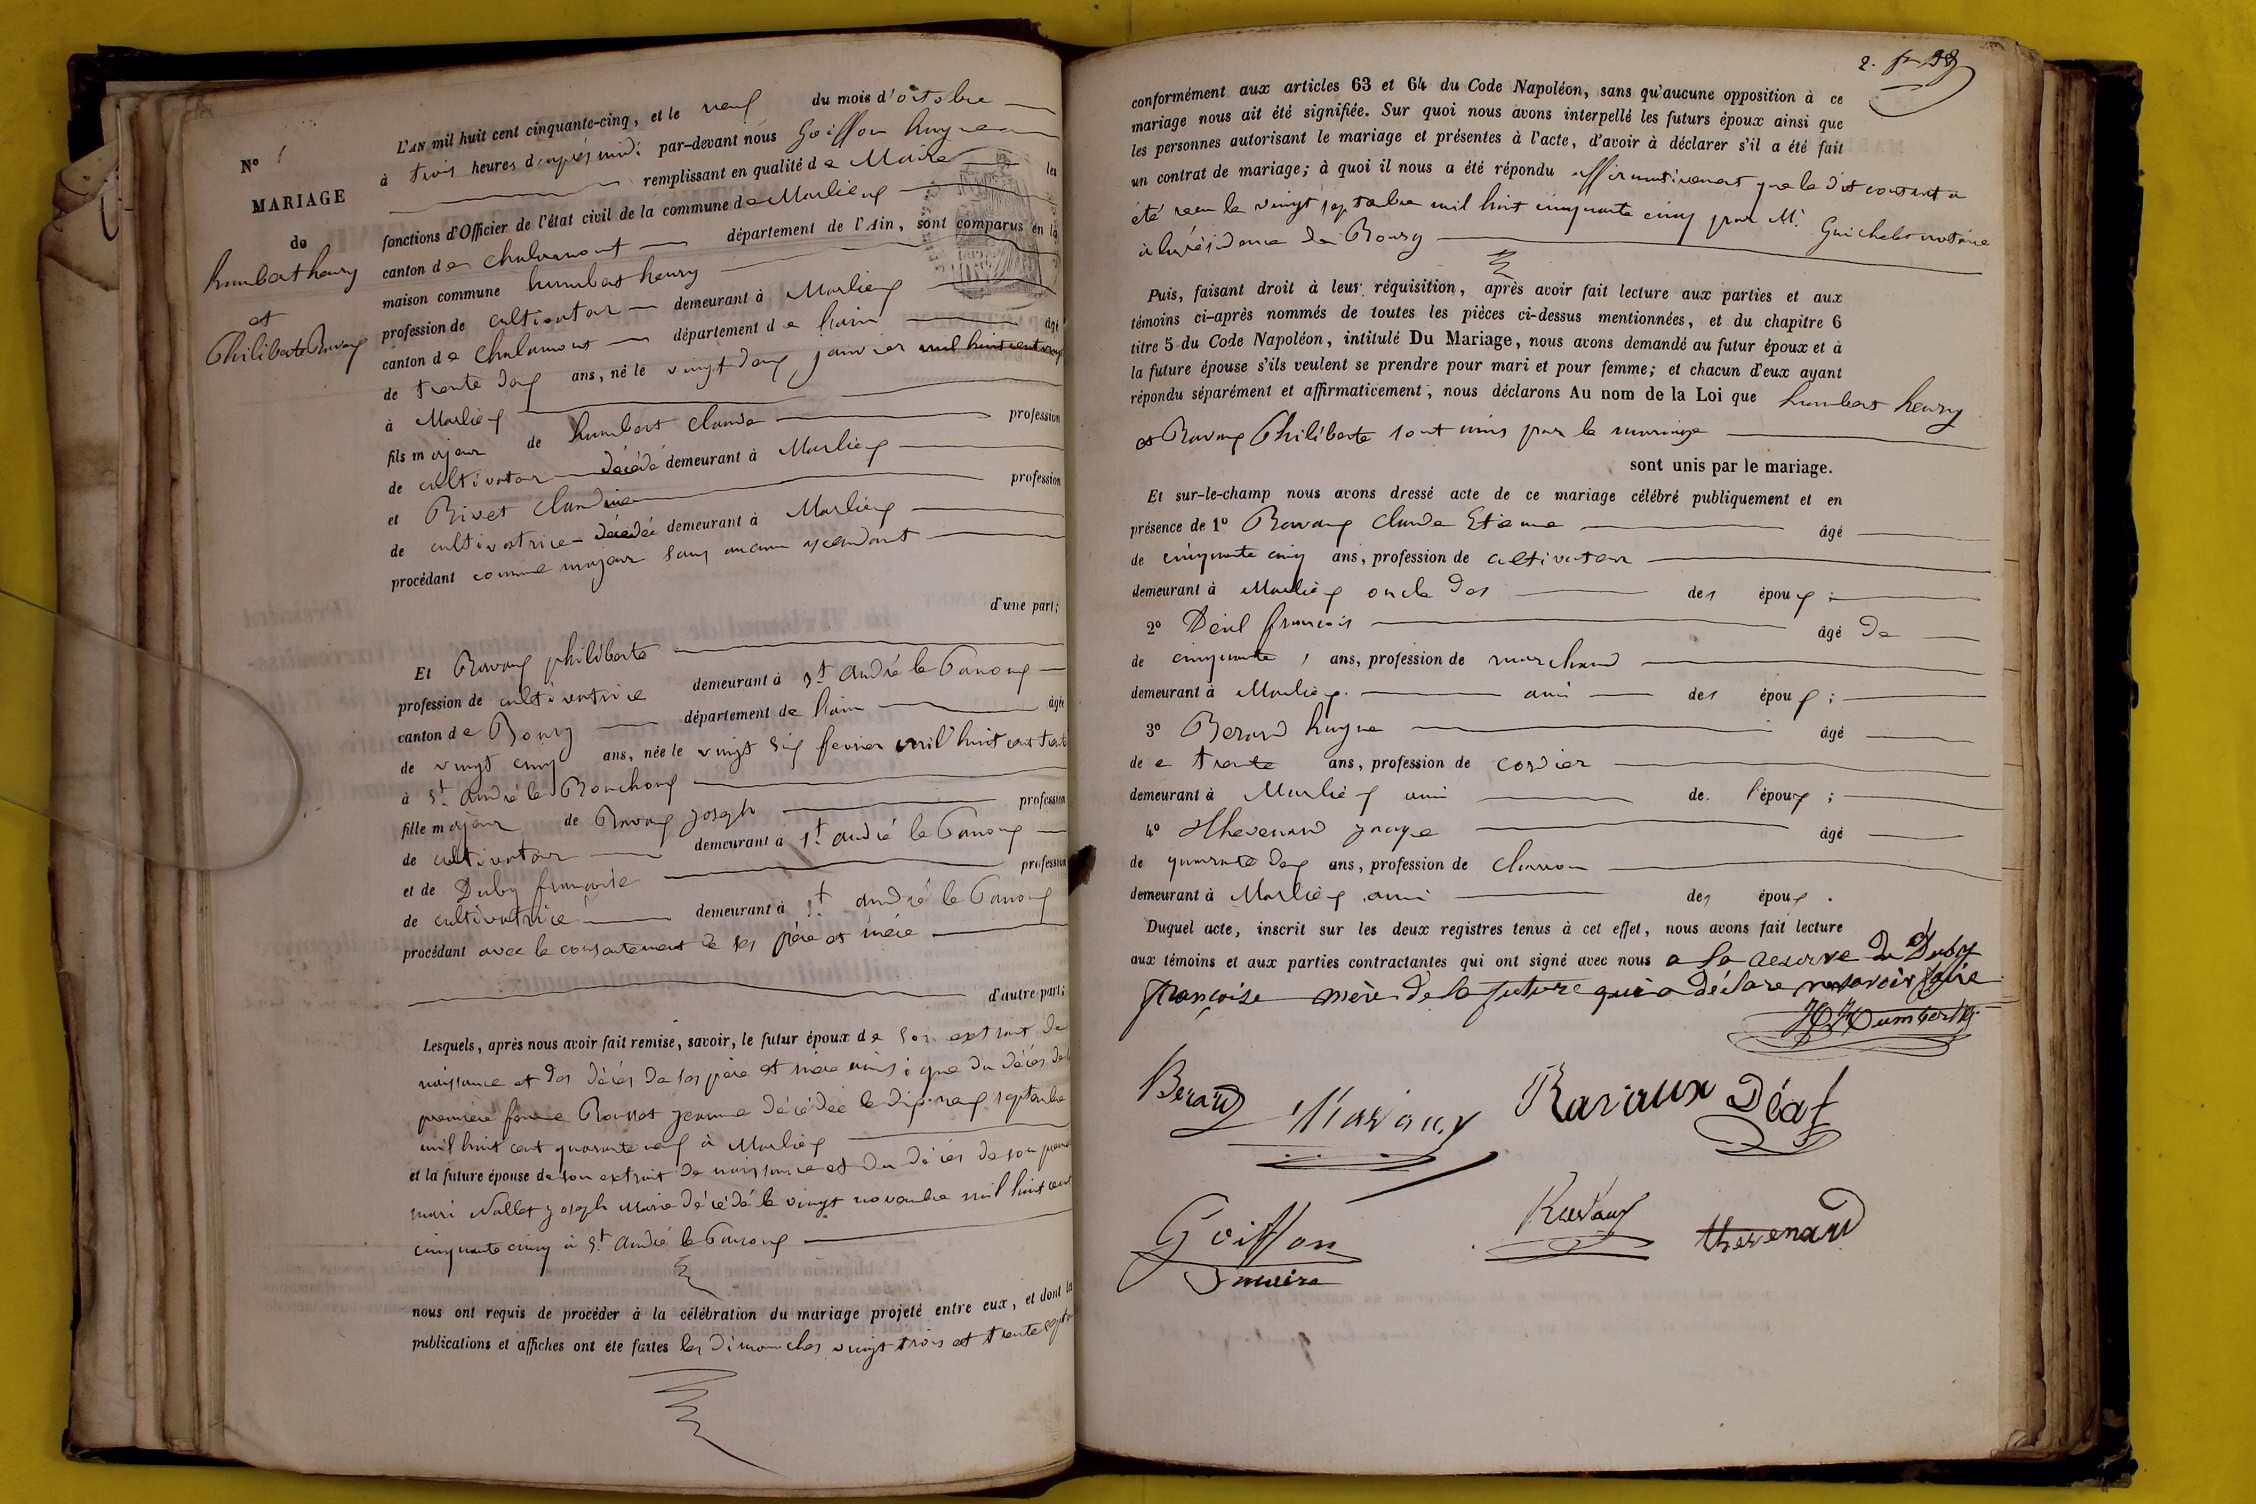 N° 1
MARIAGE
de
humbert henry
et
Philiberte Ravaux
L'AN mil huit cent cinquante-cinq, et le neuf du mois d'octobre
à trois heures d'après midi par-devant nous Goiffon hugues
remplissant en qualité de Maire les
fonctions d'Officier de l'état civil de la commune de Marlieux
canton de chalamont département de l'Ain, sont comparus en la
maison commune humbert henry
profession de cultivateur demeurant à Marlieux
canton de chalamont département de l'ain âgé
de trente deux ans, né le vingt deux janvier mil huit cent vingt
à Marlieux
fils majeur de humbert claude profession
de cultivateur décédé demeurant à Marlieux
et Rivet claudine profession
de cultivatrice décédée demeurant à Marlieux
procédant comme majeur sans aucun ascendant
d'une part;
Et Ravaux philiberte
profession de cultivatrice demeurant à St andré le Panoux
canton de Bourg département de l'ain âgée
de vingt cinq ans, née le vingt six fevrier mil huit cent trente
à St andré le Bouchoux
fille majeur de Ravaux joseph profession
de cultivateur demeurant à St andré le Panoux
et de Duby françoise profession
de cultivatrice demeurant à St andré le Panoux
procédant avec le consentement de ses père et mère
d'autre part;
Lesquels, après nous avoir fait remise, savoir, le futur époux de son extrait de
naissance et des décès de ses père et mère ainsi que du décès de la
première femme Rousset jeanne décédée le dix neuf septembre
mil huit cent quarante neuf à Marlieux
et la future épouse de son extrait de naissance et du décès de son premier
mari Nallet joseph Marie décédé le vingt novembre mil huit cent
cinquante cinq à St André le Panoux
nous ont requis de procéder à la célébration du mariage projeté entre eux, et dont les
publications et affiches ont été faites les dimanches vingt trois et trente septembre
2.
conformément aux articles 63 et 64 du Code Napoléon, sans qu'aucune opposition à ce
mariage nous ait été signifiée. Sur quoi nous avons interpellé les futurs époux ainsi que
les personnes autorisant le mariage et présentes à l'acte, d'avoir à déclarer s'il a été fait
un contrat de mariage; à quoi il nous a été répondu affirmativement que le dit contrat a
été recu le vingt septembre mil huit cinquante cinq par Mr Guichelet notaire
à la résidence de Bourg
Puis, faisant droit à leur réquisition, après avoir fait lecture aux parties et aux
témoins ci-après nommés de toutes les pièces ci-dessus mentionnées, et du chapitre 6
titre 5 du Code Napoléon, intitulé Du Mariage, nous avons demandé au futur époux et à
la future épouse s'ils veulent se prendre pour mari et pour femme; et chacun d'eux ayant
répondu séparément et affirmativement, nous déclarons Au nom de la Loi que humbert henry
et Ravaux Philiberte sont unis par le mariage
sont unis par le mariage.
Et sur-le-champ nous avons dressé acte de ce mariage célébré publiquement et en
présence de 1° Ravaux claude Etiene âgé
de cinquante cinq ans, profession de cultivateur
demeurant à Marlieux oncle des des époux;
2° Déal françois âgé de
de cinquante ans, profession de marchand
demeurant à Marlieux ami des époux;
3° Berard hugue âgé
de e trente ans, profession de cordier
demeurant à Marlieux ami de l'époux;
4° Thevenard jacque âgé
de quarante deux ans, profession de charron
demeurant à Marlieux ami des époux.
Duquel acte, inscrit sur les deux registres tenus à cet effet, nous avons fait lecture
aux témoins et aux parties contractantes qui ont signé avec nous a la reserve de Duby
françoise mère de la future qui a déclaré ne savoir faire
H Humbert
Berard Ravaux Ravaux Déal
Goiffon Ravaux thevenard
maire